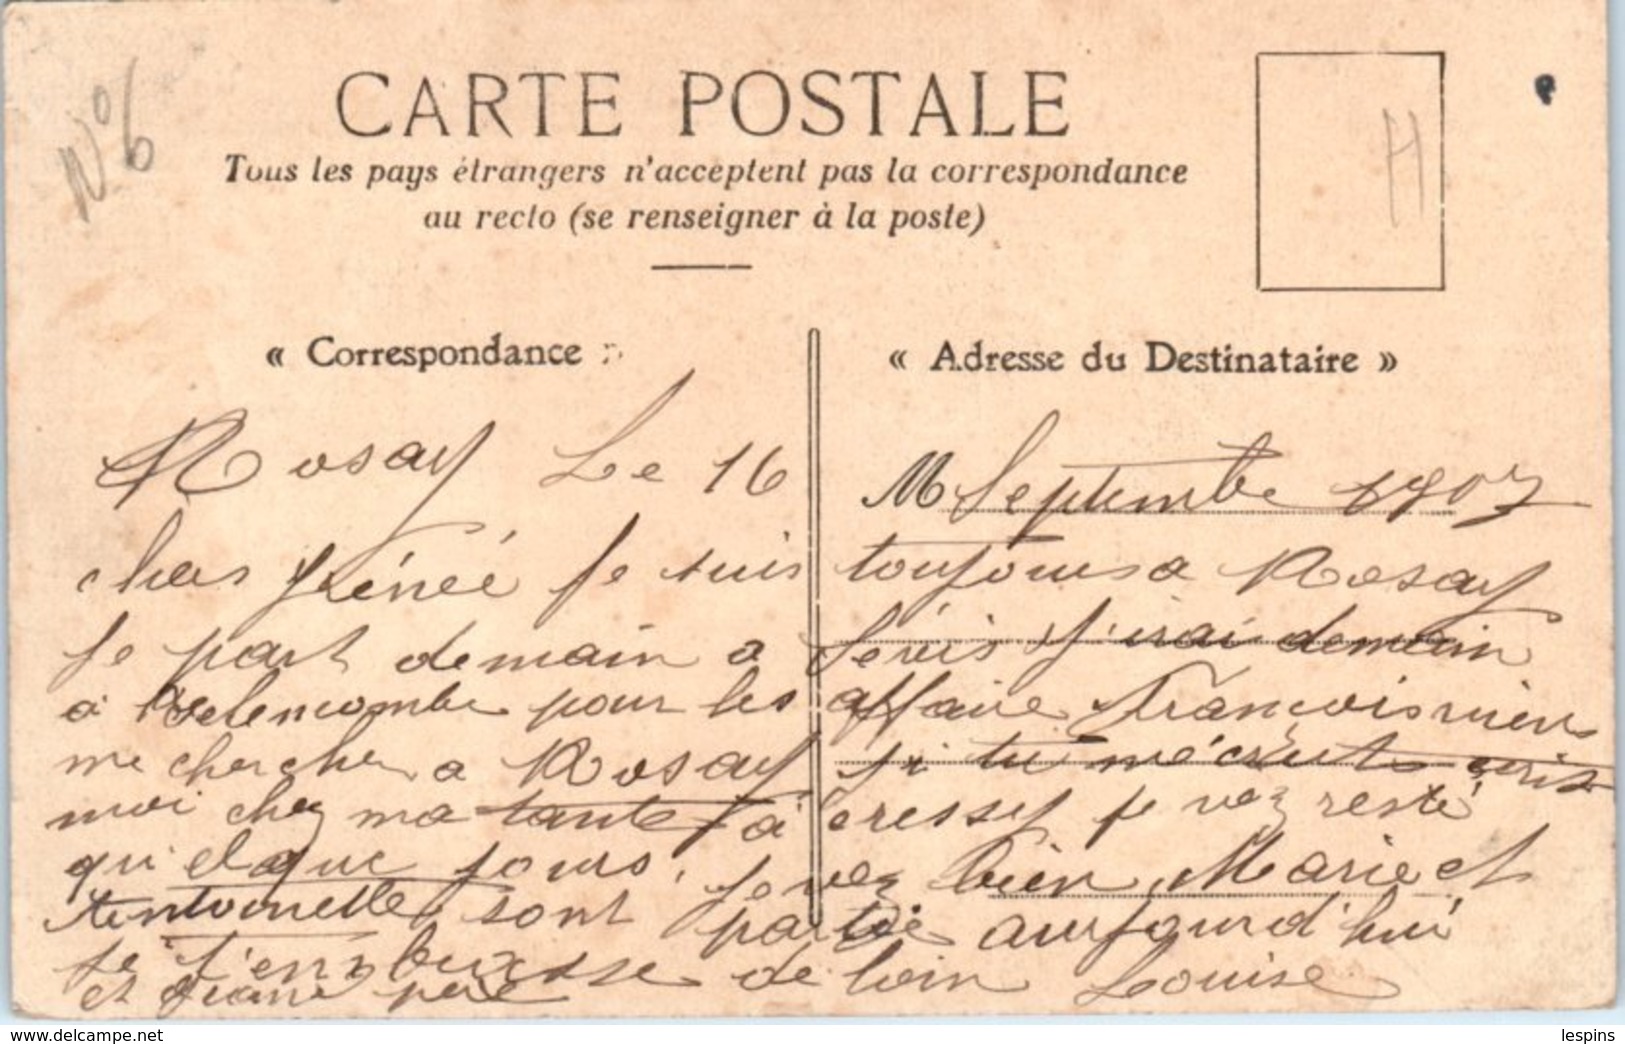 N° 6
CARTE POSTALE
Tous les pays étrangers n'acceptent pas la correspondance
au recto (se renseigner à la poste)
H
« Correspondance »
« Adresse du Destinataire »
Rosay Le 16 M Septembre 1907
chers Je suis toujours a Rosay
Je part demain a J'irai demain
a pour les affaire François viens
me chercher a Rosay si tu m'écrut
moi chez ma tante à je vez resté
qu'elque jours, Je vez bien, Marie et
Antoinette sont partie aurjourd'hui
je de loin Louise
et père
lespins
www.delcampe.net